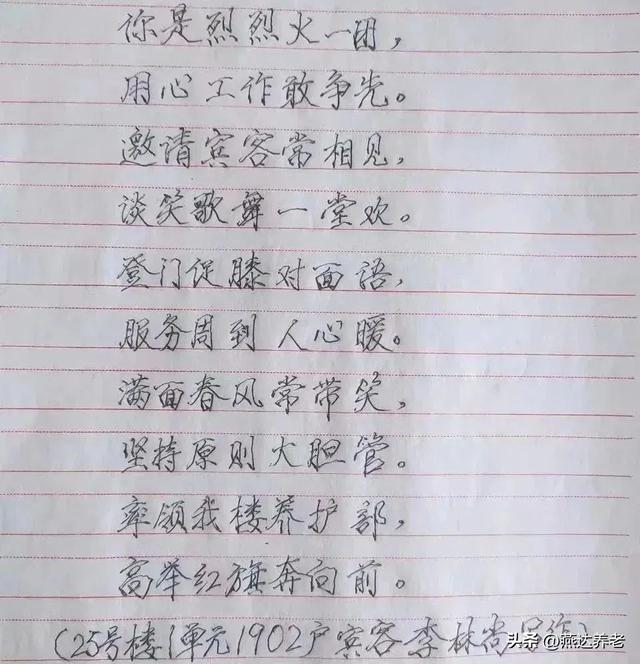 你是烈烈火一团，
用心工作敢争先。
邀请宾客常相见，
谈笑歌舞一堂欢。
登门促膝对面語，
服务周到人心暖。
满面春风常带笑，
坚持原则大胆管。
率领我楼养护部，
高举红旗奔向前。
(25号楼1单元1902户宾客李林尚
头条@燕达养老